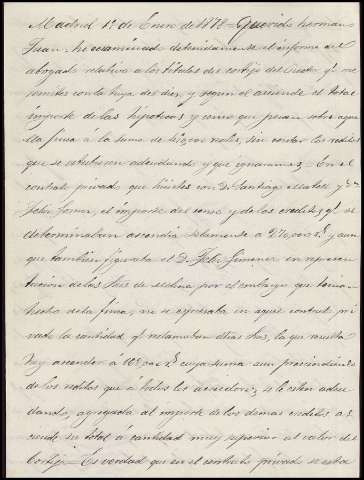 Madrid 1º de Enero de 1878 = Querido hermano
Juan: he examinado detenidamente el informe del
abogado relativo a los títulos del cortijo del q. me
remites con la tuya del diez, y segun el asciende el total
importe de las hipotecas y censo que pesan sobre aque
lla finca á la suma de reales, sin contar los reditos
que se estuvieran adeudando y que ignoramos. En el
contrato privado que hicistes con D. Santiago y D.
Felix Gimenez, el importe del censo y de los creditos q. se
determinaban ascendia solamente a y aun
que tambien figuraba el D. Felix Gimenez en represen
tacion de los Sres. de por el embargo que tenian
hecho de la finca, no se espresaba en aquel contrato pri
vado la cantidad q. reclamaban dhos. Sres., la que resulta
hoy ascender á cuya suma aun prescindiendo
de los reditos que a todos los acreedores se le esten adeu
dando, agregada al importe de los demas creditos as
ciende su total á cantidad muy superior al valor del
Cortijo. Es verdad que en el contrato privado se esta